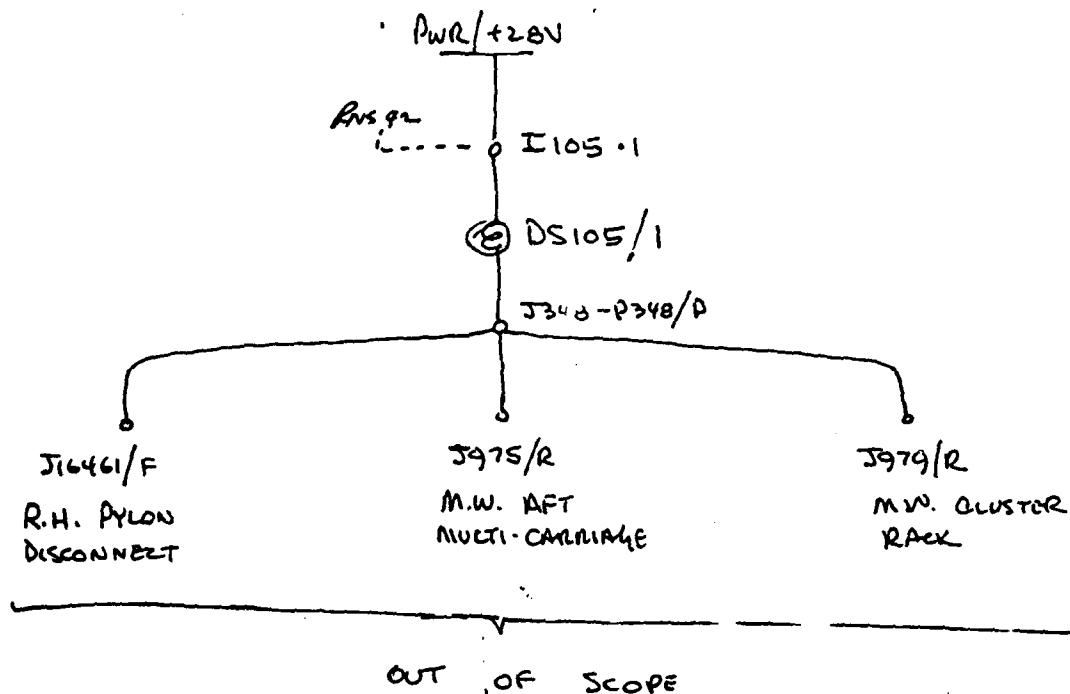 PWR/+28V
I105.1
DS105/1
J348-P348/P
J16461/F
R.H. PYLON
DISCONNECT
J975/R
M.W. AFT
MULTI-CARRIAGE
J979/R
M.W. CLUSTER
RACK
OUT OF SCOPE